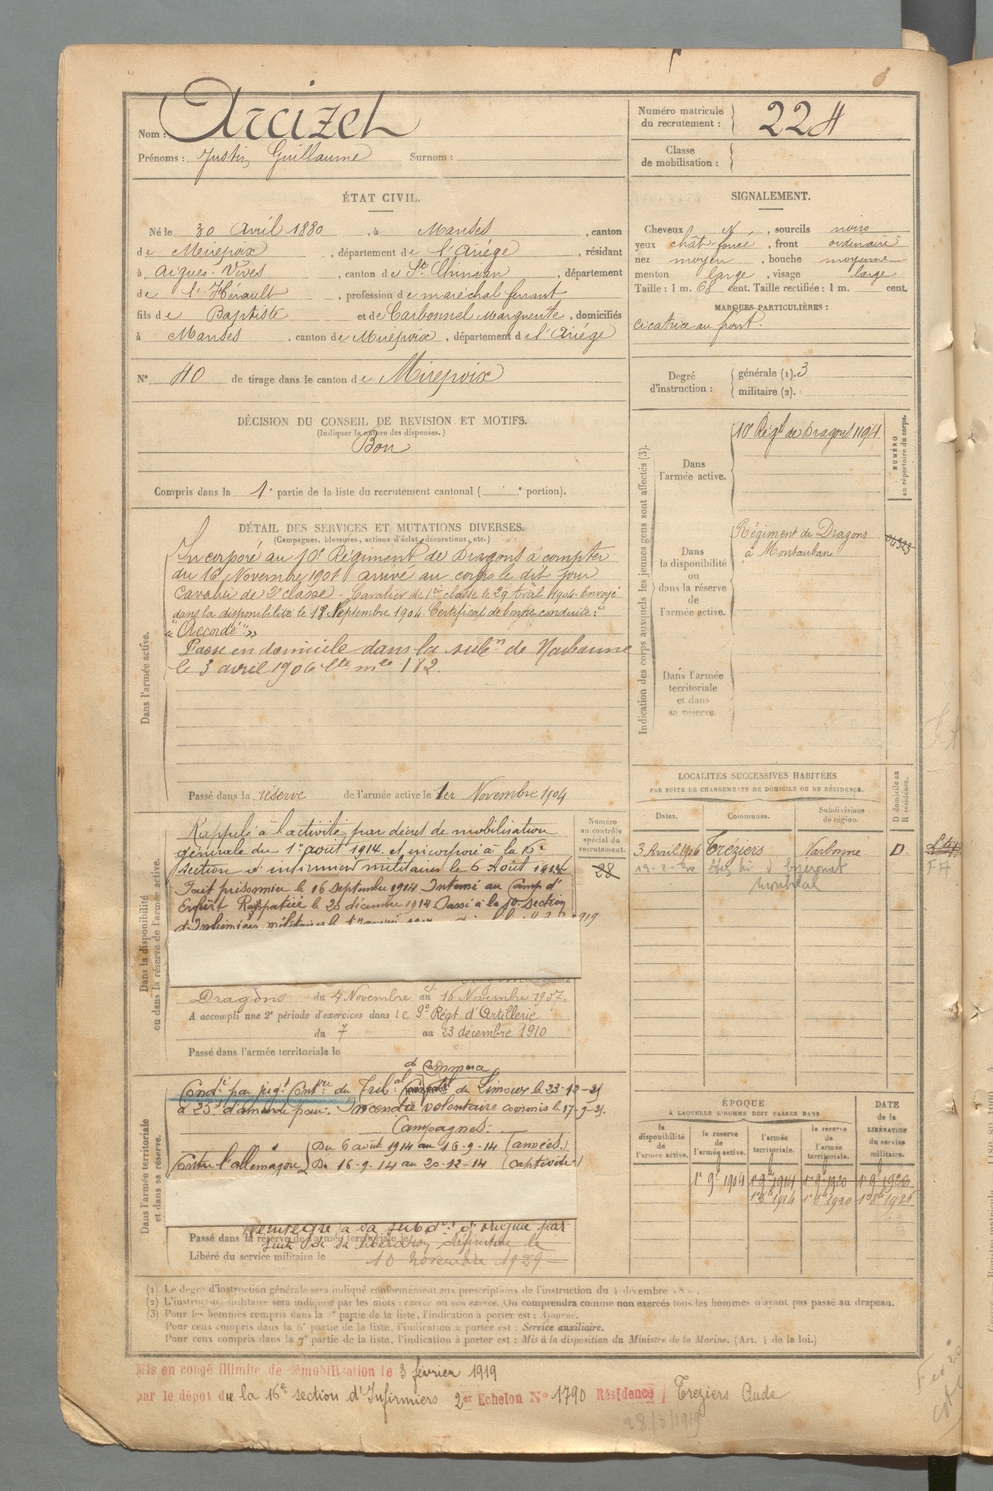 Nom : Arcizet
Prénoms : Justin Guillaume Surnom :
Numéro matricule du recrutement : 224
Classe de mobilisation :
ÉTAT CIVIL.
Né le 30 Avril 1880, à Manses, canton
de Mirepoix, département de l'Ariége, résidant
à Aigues-Vives, canton de St Chinian, département
de l'Hérault, profession de maréchal ferrant
fils de Baptiste et de Carbonnel Marguerite, domiciliés
à Manses, canton de Mirepoix, département de l'Ariége
N° 40 de tirage dans le canton de Mirepoix
SIGNALEMENT.
Cheveux N, sourcils noirs
yeux chât foncé, front ordinaire
nez moyen, bouche moyenne
menton large, visage large
Taille : 1 m. 68 cent. Taille rectifiée : 1 m. cent.
MARQUES PARTICULIÈRES :
cicatrice au front.
Degré d'instruction : générale (1). 3
militaire (2).
DÉCISION DU CONSEIL DE REVISION ET MOTIFS.
(Indiquer la nature des dispenses.)
Bon
Compris dans la 1e partie de la liste du recrutement cantonal ( e portion).
DÉTAIL DES SERVICES ET MUTATIONS DIVERSES.
(Campagnes, blessures, actions d'éclat, décorations, etc.)
Dans l'armée active.
Incorporé au 10e Régiment de Dragons à compter
du 16 Novembre 1901 arrivé au corps le dit jour
Cavalier de 2e classe. Cavalier de 1re classe le 29 Avril 1904. Envoyé
dans la disponibilité le 18 Septembre 1904. Certificat de bonne conduite :
"Accordé"
Passe en domicile dans la subon de Narbonne
le 3 avril 1906 mle 182.
Passé dans la réserve de l'armée active le 1er Novembre 1904
Indication des corps auxquels les jeunes gens sont affectés (3).
NUMÉRO au répertoire du corps.
Dans l'armée active.
10e Régt de Dragons 1194
Dans la disponibilité ou dans la réserve de l'armée active.
Régiment de Dragons
à Montauban
Dans l'armée territoriale et dans sa réserve.
LOCALITÉS SUCCESSIVES HABITÉES
PAR SUITE DE CHANGEMENTS DE DOMICILE OU DE RÉSIDENCE.
Dates. Communes. Subdivisions de région. D domicile ou R résidence.
3 Avril 1906 Tréziers Narbonne D
Montréal
Dans la disponibilité ou dans la réserve de l'armée active.
Numéro au contrôle spécial du recrutement.
38
Rappelé à l'activité par décret de mobilisation
générale du 1er août 1914 et incorporé à la 15e
Section d'infirmiers militaires le 6 Août 1914
Fait prisonnier le 16 Septembre 1914 Interné au Camp d'
Erfurt Rapatrié le 20 décembre 1914 Passé à la 10e section
d'Infirmiers militaires
Dragons du 4 Novembre au 16 Novembre 1907.
A accompli une 2e période d'exercices dans le 9e Régt d'Artillerie
du 7 au 23 décembre 1910
Passé dans l'armée territoriale le
Dans l'armée territoriale et dans sa réserve.
Condé par jugt Contre du Tribal de Limoux le 23-12-21
à 25f d'amende pour Incendie volontaire commis le 17-9-21.
Campagnes :
Contre l'allemagne Du 6 août 1914 au 16-9-14 (armées)
Du 16-9-14 au 20-12-14 (captivité)
Réintégré à sa subdon d'origine par
suite de sa libération définitive le
Passé dans la réserve de l'armée territoriale le
Libéré du service militaire le 10 novembre 1929
ÉPOQUE
À LAQUELLE L'HOMME DOIT PASSER DANS
la disponibilité de l'armée active. la réserve de l'armée active. l'armée territoriale. la réserve de l'armée territoriale.
DATE de la LIBÉRATION du service militaire.
1er 9bre 1904 1er 9bre 1914 1er 9bre 1920 1er 9bre 1926
1er 8bre 1914 1er 8bre 1920 1er 8bre 1926
(1) Le degré d'instruction générale sera indiqué conformément aux prescriptions de l'instruction du 4 décembre
(2) L'instruction militaire sera indiquée par les mots : exercé ou non exercé. On comprendra comme non exercés tous les hommes n'ayant pas passé au drapeau.
(3) Pour les hommes compris dans la partie de la liste, l'indication à porter est : Ajourné.
Pour ceux compris dans la 6e partie de la liste, l'indication à porter est : Service auxiliaire.
Pour ceux compris dans la 7e partie de la liste, l'indication à porter est : Mis à la disposition du Ministre de la Marine. (Art. 4 de la loi.)
Mis en congé illimité de démobilisation le 3 février 1919
par le dépôt de la 16e section d'Infirmiers 2e Echelon N° 1790 Résidence Treziers Aude
28/3/1919